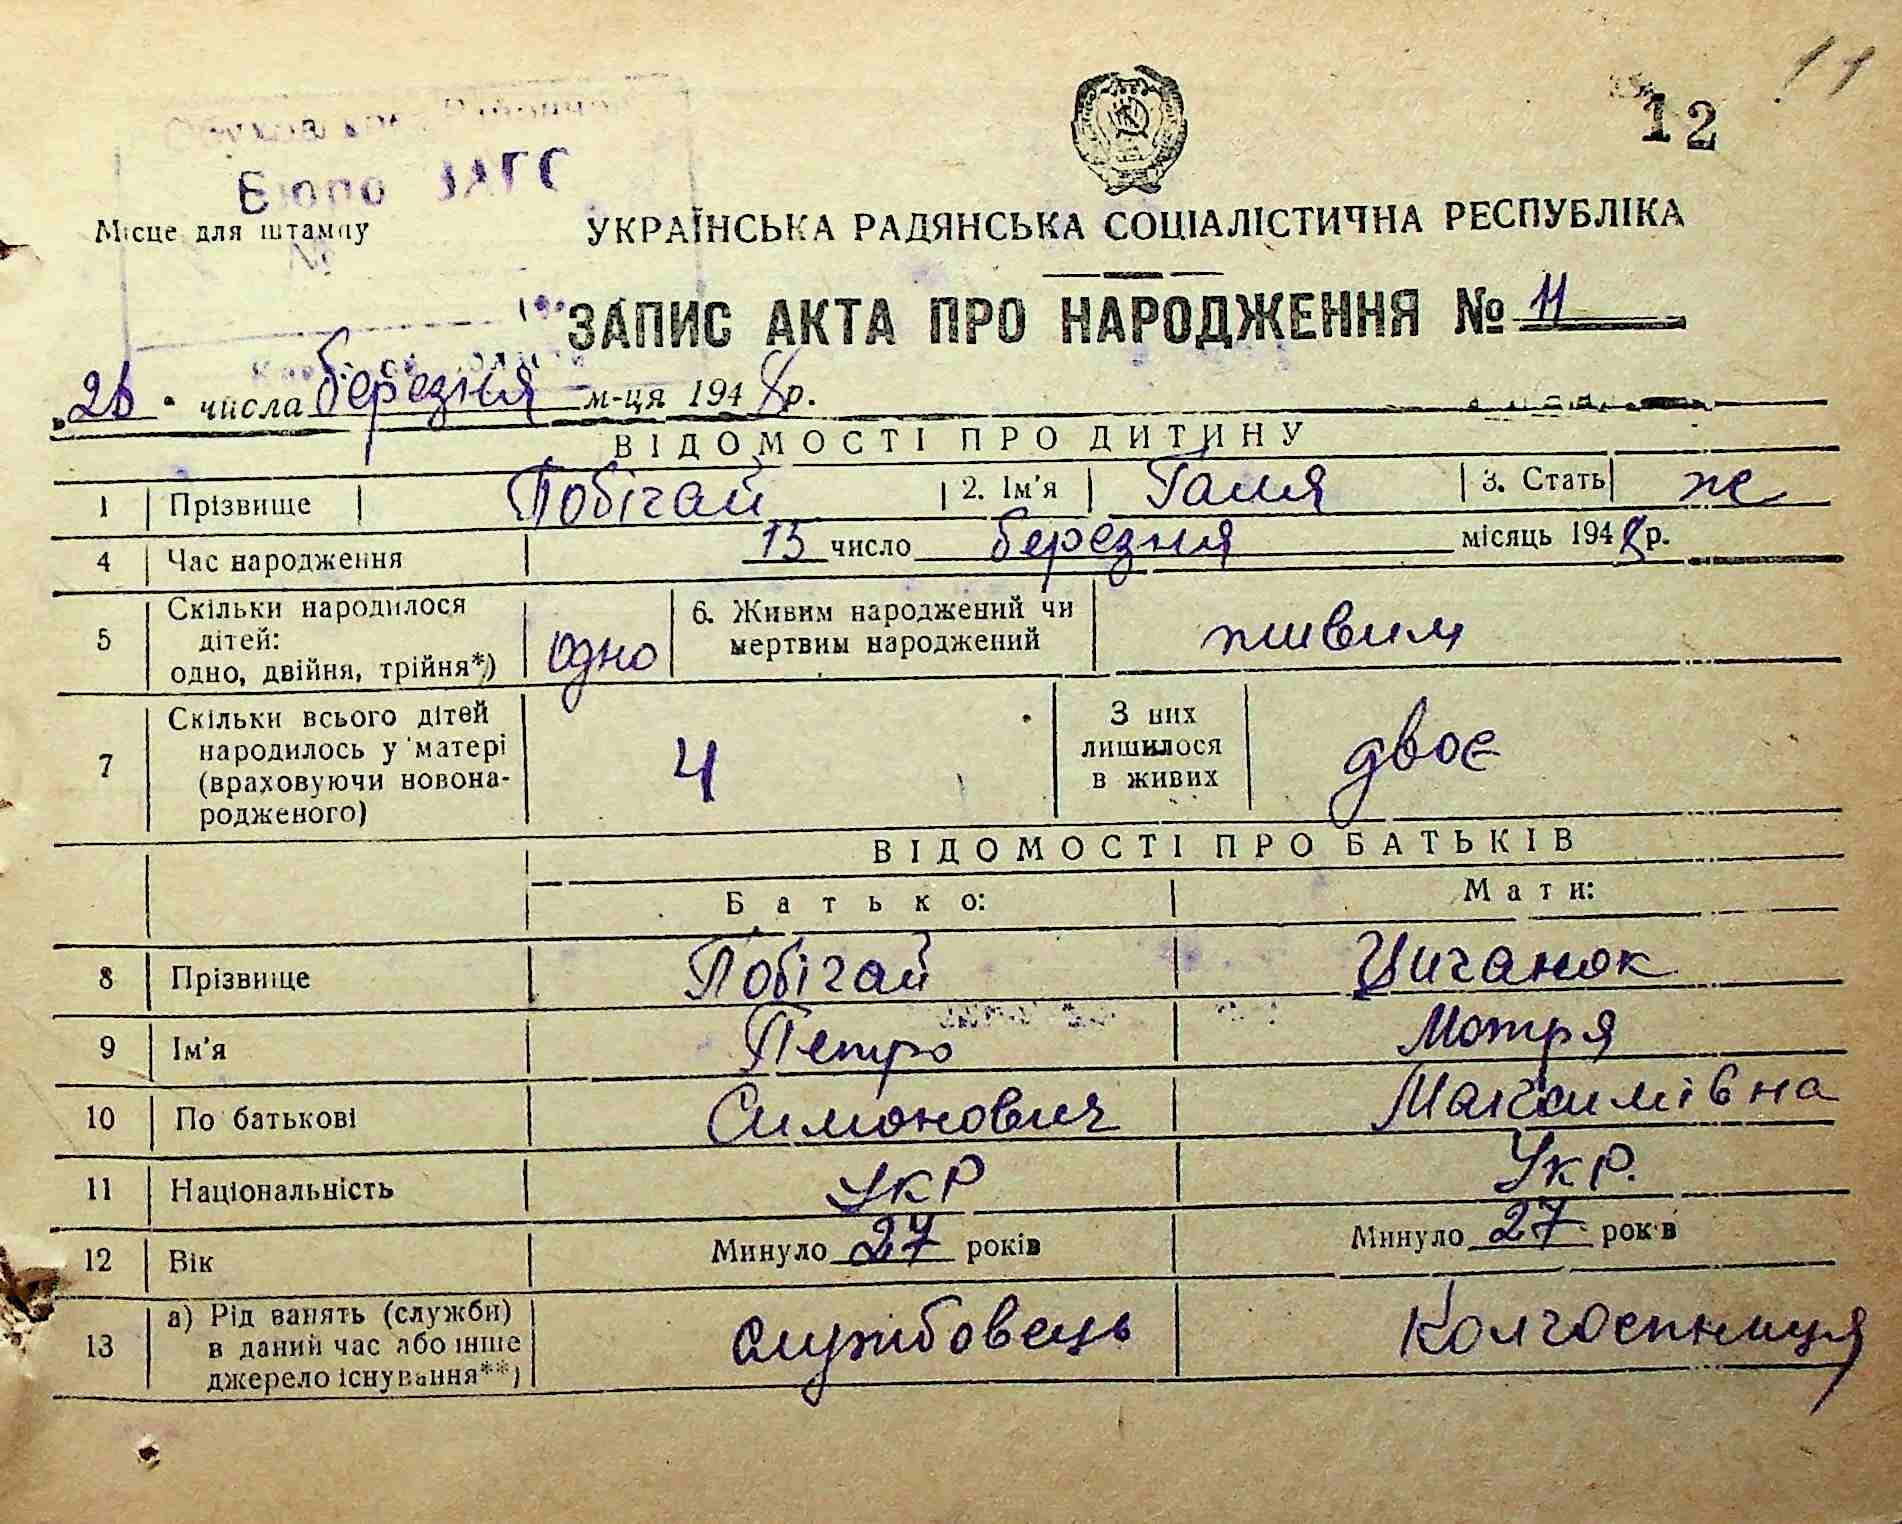 11
12
Бюро ЗАГС
Місце для штампу
№
УКРАЇНСЬКА РАДЯНСЬКА СОЦІАЛІСТИЧНА РЕСПУБЛІКА
ЗАПИС АКТА ПРО НАРОДЖЕННЯ № 11
числа березня м-ця 1948 р.
ВІДОМОСТІ ПРО ДИТИНУ
1 Прізвище Побігай 2. Ім'я Галя 3. Стать ж
4 Час народження 13 число березня місяць 1948 р.
5 Скільки народилося дітей: одно, двійня, трійня*) одно 6. Живим народжений чи мертвим народжений живим
7 Скільки всього дітей народилось у матері (враховуючи новонародженого) 4 З них лишилося в живих двоє
ВІДОМОСТІ ПРО БАТЬКІВ
Батько: Мати:
8 Прізвище Побігай Циганок
9 Ім'я Петро Мотря
10 По батькові Симонович Максимівна
11 Національність Укр Укр.
12 Вік Минуло 27 років Минуло 27 років
13 а) Рід занять (служби) в даний час або інше джерело існування**) службовець колгоспниця